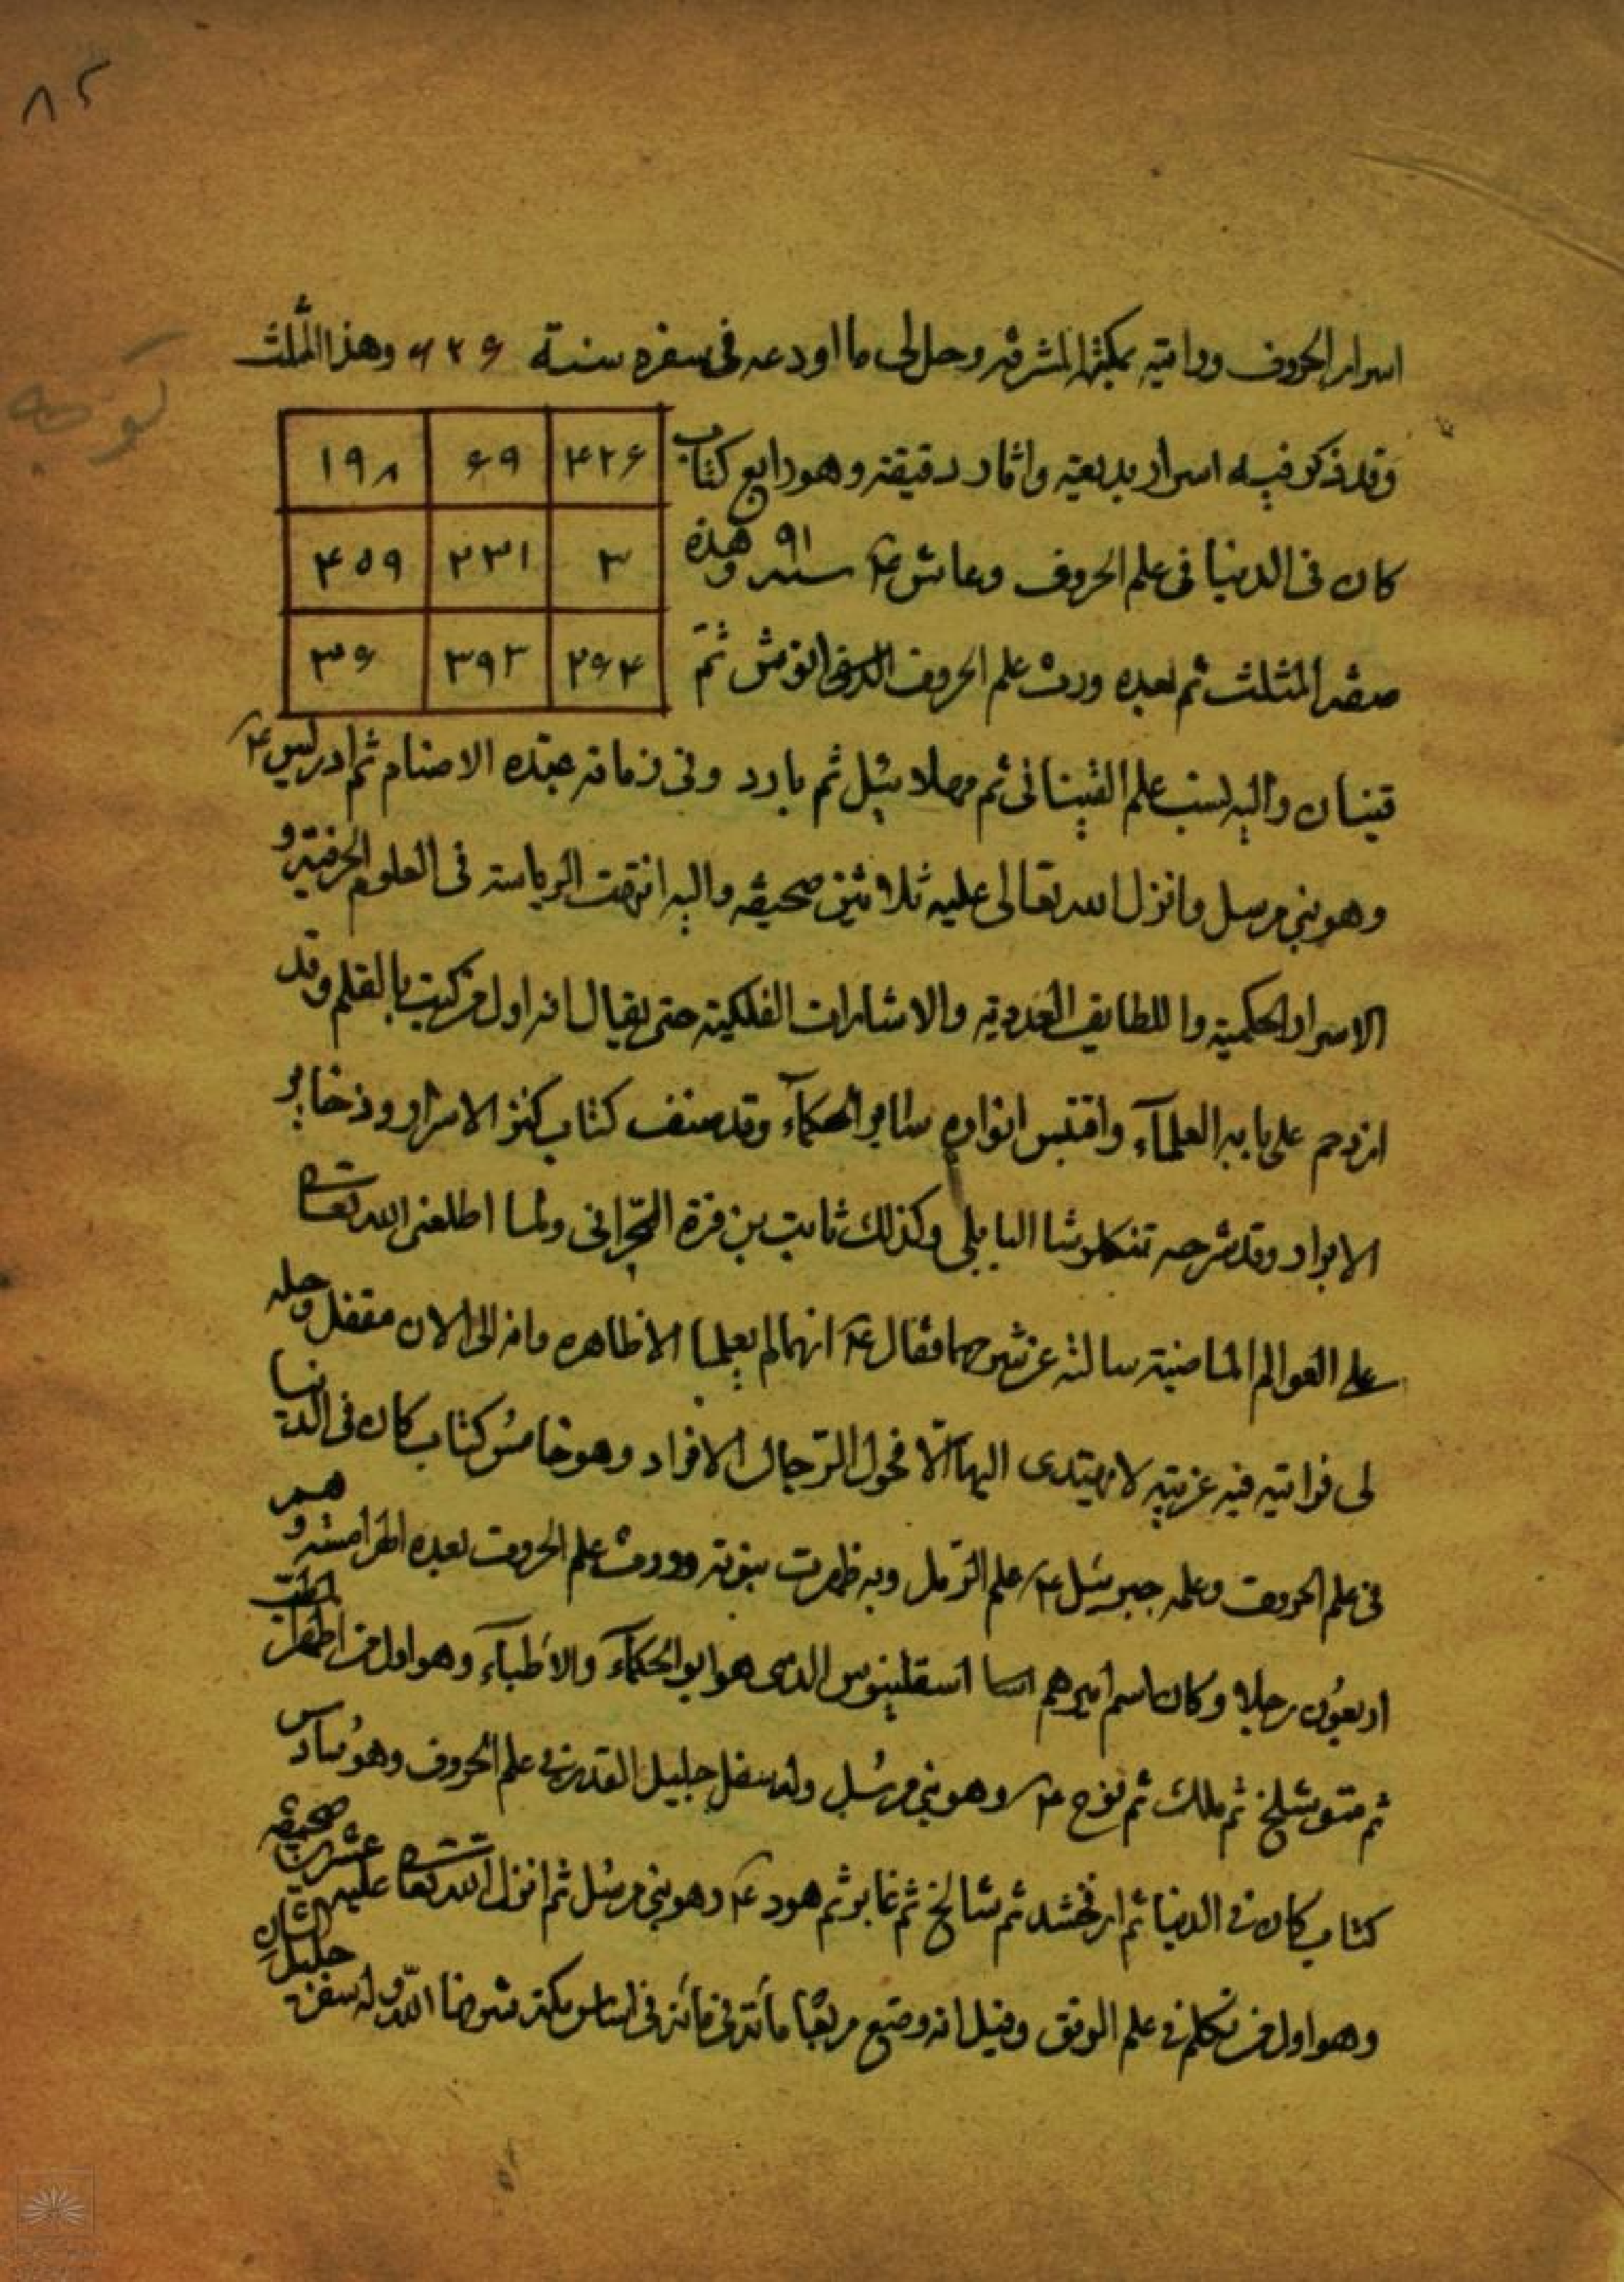 ۸۲
اسرار الحروف وراتيه بمكة المشرفه وحل لى ما اودعه فى سفره سنة ۶۲۶ وهذا المثلث
وقد ذكر فيه اسرار بديعة واثار دقيقة وهو رابع كتاب
كان فى الدنيا فى علم الحروف وعاش ع ۹۱ سنه وهذه
صفة المثلث ثم بعده ورث علم الحروف انوش ثم
۱۹۸ ۶۹ ۴۲۶
۴۵۹ ۲۳۱ ۳
۳۶ ۳۹۳ ۲۶۴
قينان واليه نسب علم القينانى ثم مهلائيل ثم يارد وفى زمانه عبده الاصنام ثم ادريس ع
وهو نبي مرسل وانزل الله تعالى عليه ثلاثين صحيفه واليه انتهت الرياسته فى العلوم الحرفية و
الاسرار الحكمية واللطايف العددية والاشارات الفلكية حتى يقال انه اول من كتب بالقلم وقد
ازدحم على بابه العلمآء واقتبس انواره سائر الحكمآء وقد صنف كتاب كنز الاسرار وذخاير
الابرار وقد شرحه تنكلوشا البابلى وكذلك ثابت بن قرة الحرّانى ولما اطلعنى الله تعالى
على العوالم الماضية سالته عن شرحهما فقال ع انهما لم يعلما الا ظاهره وانه الى الان مقفل وحله
لى فراتيه فيه غريبه لا يهتدى اليها الّا فحول الرّجال الافراد وهو خامسُ كتاب كان فى الدنيا
فى علم الحروف وعلمه جبرئيل ع علم الرّمل وبه ظهرت نبوته وورث علم الحروف بعده الهرامسه وهم
اربعُون رجلا وكان اسم اميرهم اسقلينوس الذى هو ابو الحكمآء والاطبآء وهو اول من اظهر الطبّ
ثم متوشلخ ثم ملك ثم نوح ع وهو نبي مرسُل وله سفل جليل القدر فى علم الحروف وهو سادس
كتاب كان فى الدنيا ثم ارفخشد ثم شالخ ثم غابر ثم هود ع وهو نبي مرسُل ثم انزل الله تعالى عليه عشرين صحيفه
وهو اول من تكلم فى علم الوفق وقيل انه وضع مربّعا مائة فى مائة فى اساس مكه شرفها اللّه وله سفر جليل الشان